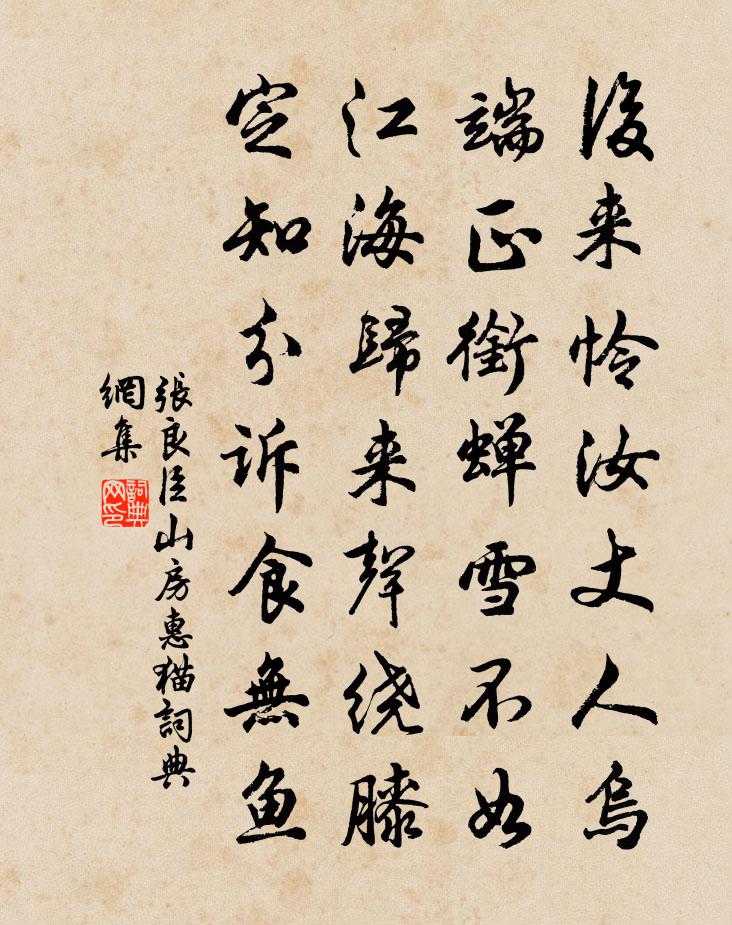 後来怜汝丈人烏
端正銜蝉雪不如
江海歸来聲绕膝
定知分诉食無鱼
張良臣山房惠猫詞典
網集
詞典
网印